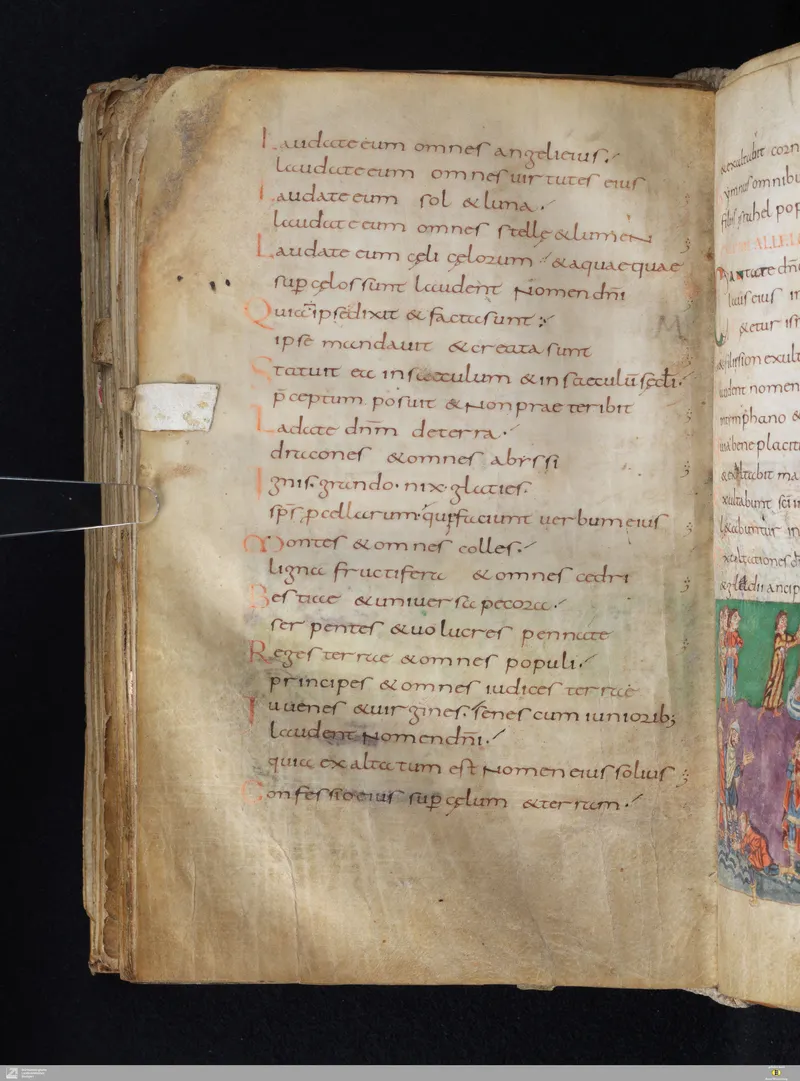 Laudate eum omnes angeli eius ./
laudate eum omnes uirtutes eius
Laudate eum sol & luna ./
laudate eum omnes stellę & lumen
Laudate eum cęli cęlorum ./ & aquae quae
sup̄ cęlos sunt laudent Nomen dn̄i
Quia ip̄se dixit & facta sunt ;
ipse mandauit & creata sunt
Statuit ea in saeculum & in saeculū sęcli ./
p̄ceptum posuit & Non praeteribit
Ladate dn̄m de terra ./
dracones & omnes abyssi
Ignis. grando. nix. glacies.
sp̄s p̄cellarum. qui faciunt uerbum eius
Montes & omnes colles ./
ligna fructifera & omnes cedri
Bestiae & uniuersa pecora ./
serpentes & uolucres pennate
Reges terrae & omnes populi ./
principes & omnes iudices terrae
Iuuenes & uirgines. senes cum iuniorib;
laudent Nomen dn̄i ./
quia exaltatum est Nomen eius solius
Confessio eius sup̄ cęlum & terram ./
& exaltabit corn
ymnus omnibu
filiis israhel pop
ALLEL
Cantate dn̄o
laus eius in
& filii sion exult
laudent nomen
in tympano &
& exaltabit ma
exultabunt sc̄i in
laetabuntur in
exaltationes d
& gladii ancip